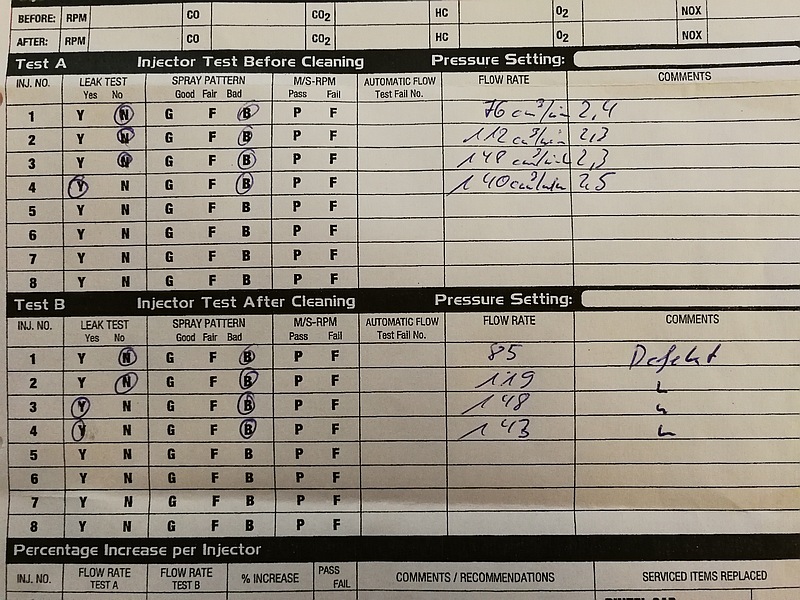 BEFORE: RPM CO CO2 HC O2 NOX
AFTER: RPM CO CO2 HC O2 NOX
Test A Injector Test Before Cleaning Pressure Setting:
INJ. NO. LEAK TEST SPRAY PATTERN M/S-RPM AUTOMATIC FLOW FLOW RATE COMMENTS
Yes No Good Fair Bad Pass Fail Test Fail No.
1 Y N G F B P F 76 cm³/min 2,4
2 Y N G F B P F 112 cm³/min 2,3
3 Y N G F B P F 148 cm³/min 2,3
4 Y N G F B P F 140 cm³/min 2,5
5 Y N G F B P F
6 Y N G F B P F
7 Y N G F B P F
8 Y N G F B P F
Test B Injector Test After Cleaning Pressure Setting:
INJ. NO. LEAK TEST SPRAY PATTERN M/S-RPM AUTOMATIC FLOW FLOW RATE COMMENTS
Yes No Good Fair Bad Pass Fail Test Fail No.
1 Y N G F B P F 85 Defekt
2 Y N G F B P F 119
3 Y N G F B P F 148
4 Y N G F B P F 143
5 Y N G F B P F
6 Y N G F B P F
7 Y N G F B P F
8 Y N G F B P F
Percentage Increase per Injector
INJ. NO. FLOW RATE TEST A FLOW RATE TEST B % INCREASE PASS FAIL COMMENTS / RECOMMENDATIONS SERVICED ITEMS REPLACED